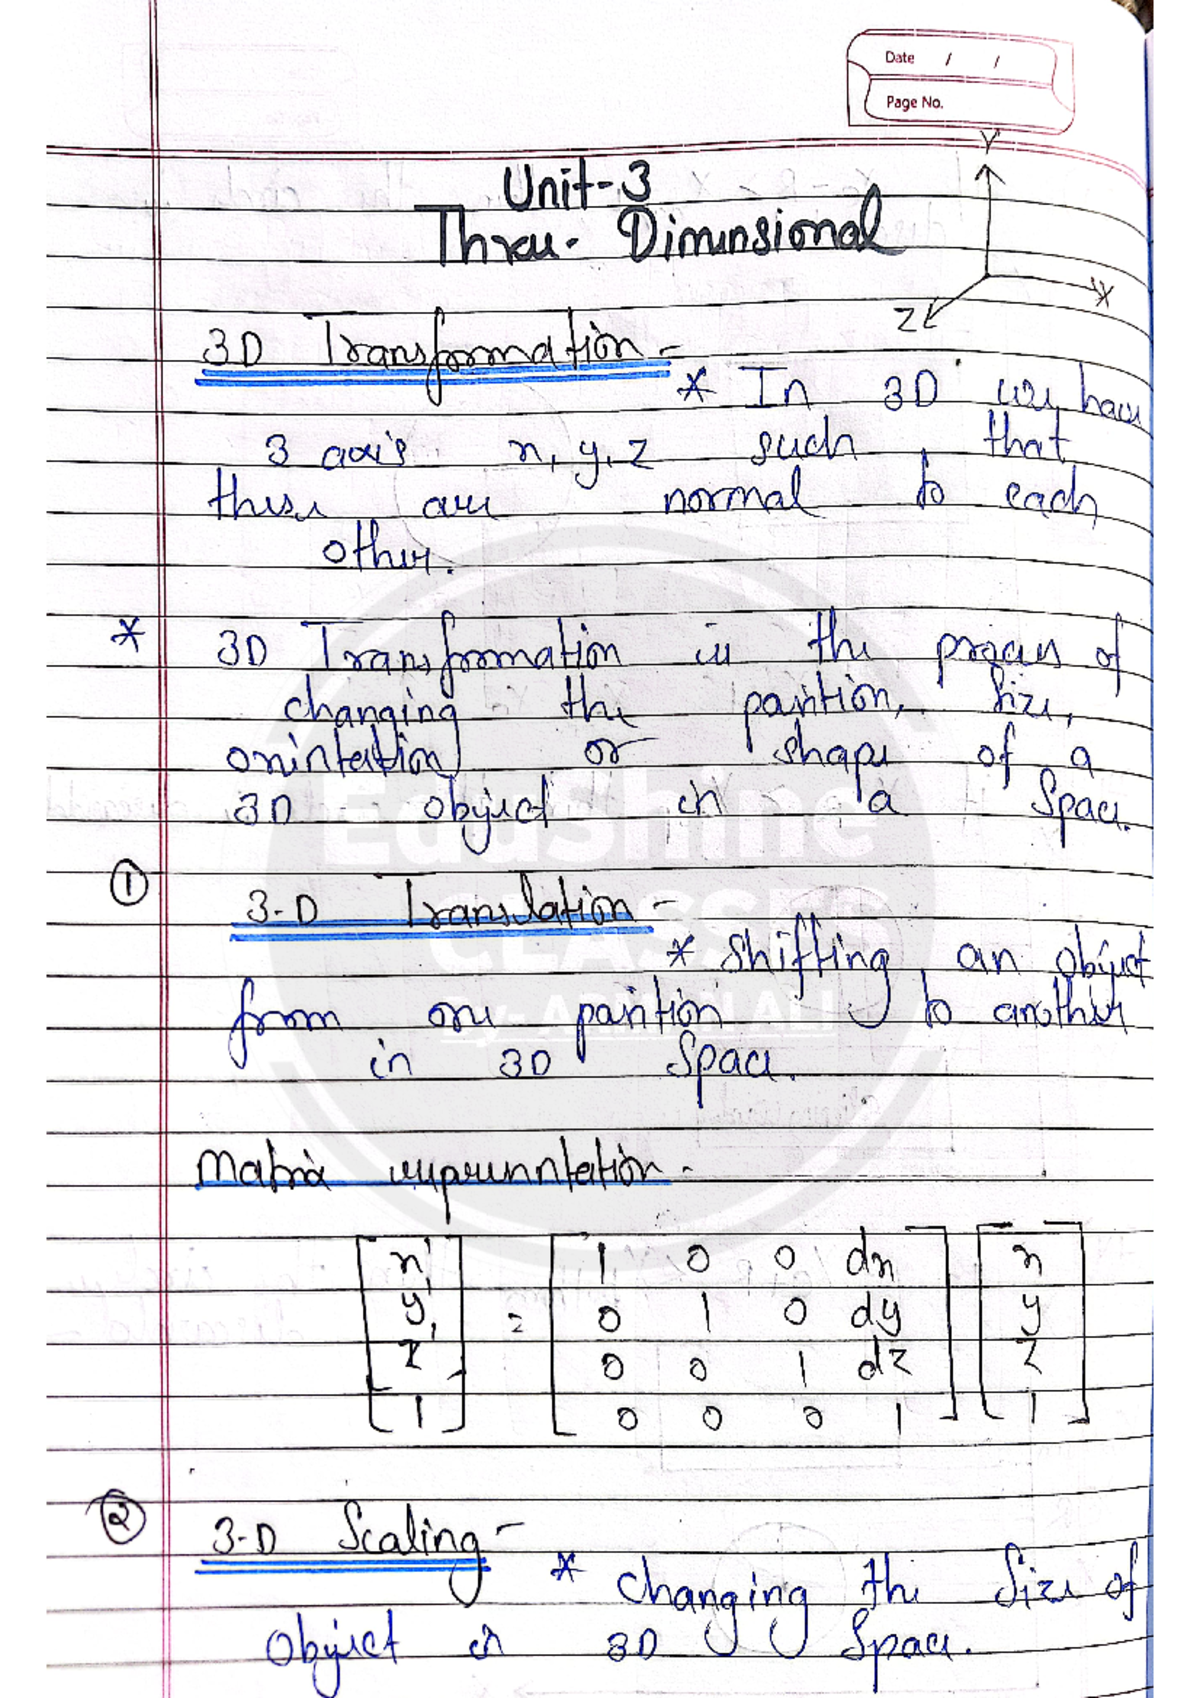 Date / /
Page No.
Unit-3
Three-Dimensional
Y
X
Z
3D Transformation -
* In 3D we have
3 axis x, y, z such that
these are normal to each
other.
* 3D Transformation is the process of
changing the position, size,
orientation or shape of a
3D object in a space.
① 3-D Translation -
* Shifting an object
from one position to another
in 3D space.
Matrix representation -
x' = 1 0 0 dx x
y' 0 1 0 dy y
z' 0 0 1 dz z
1 0 0 0 1 1
② 3-D Scaling -
* Changing the size of
object in 3D space.
EduShine
CLASSES